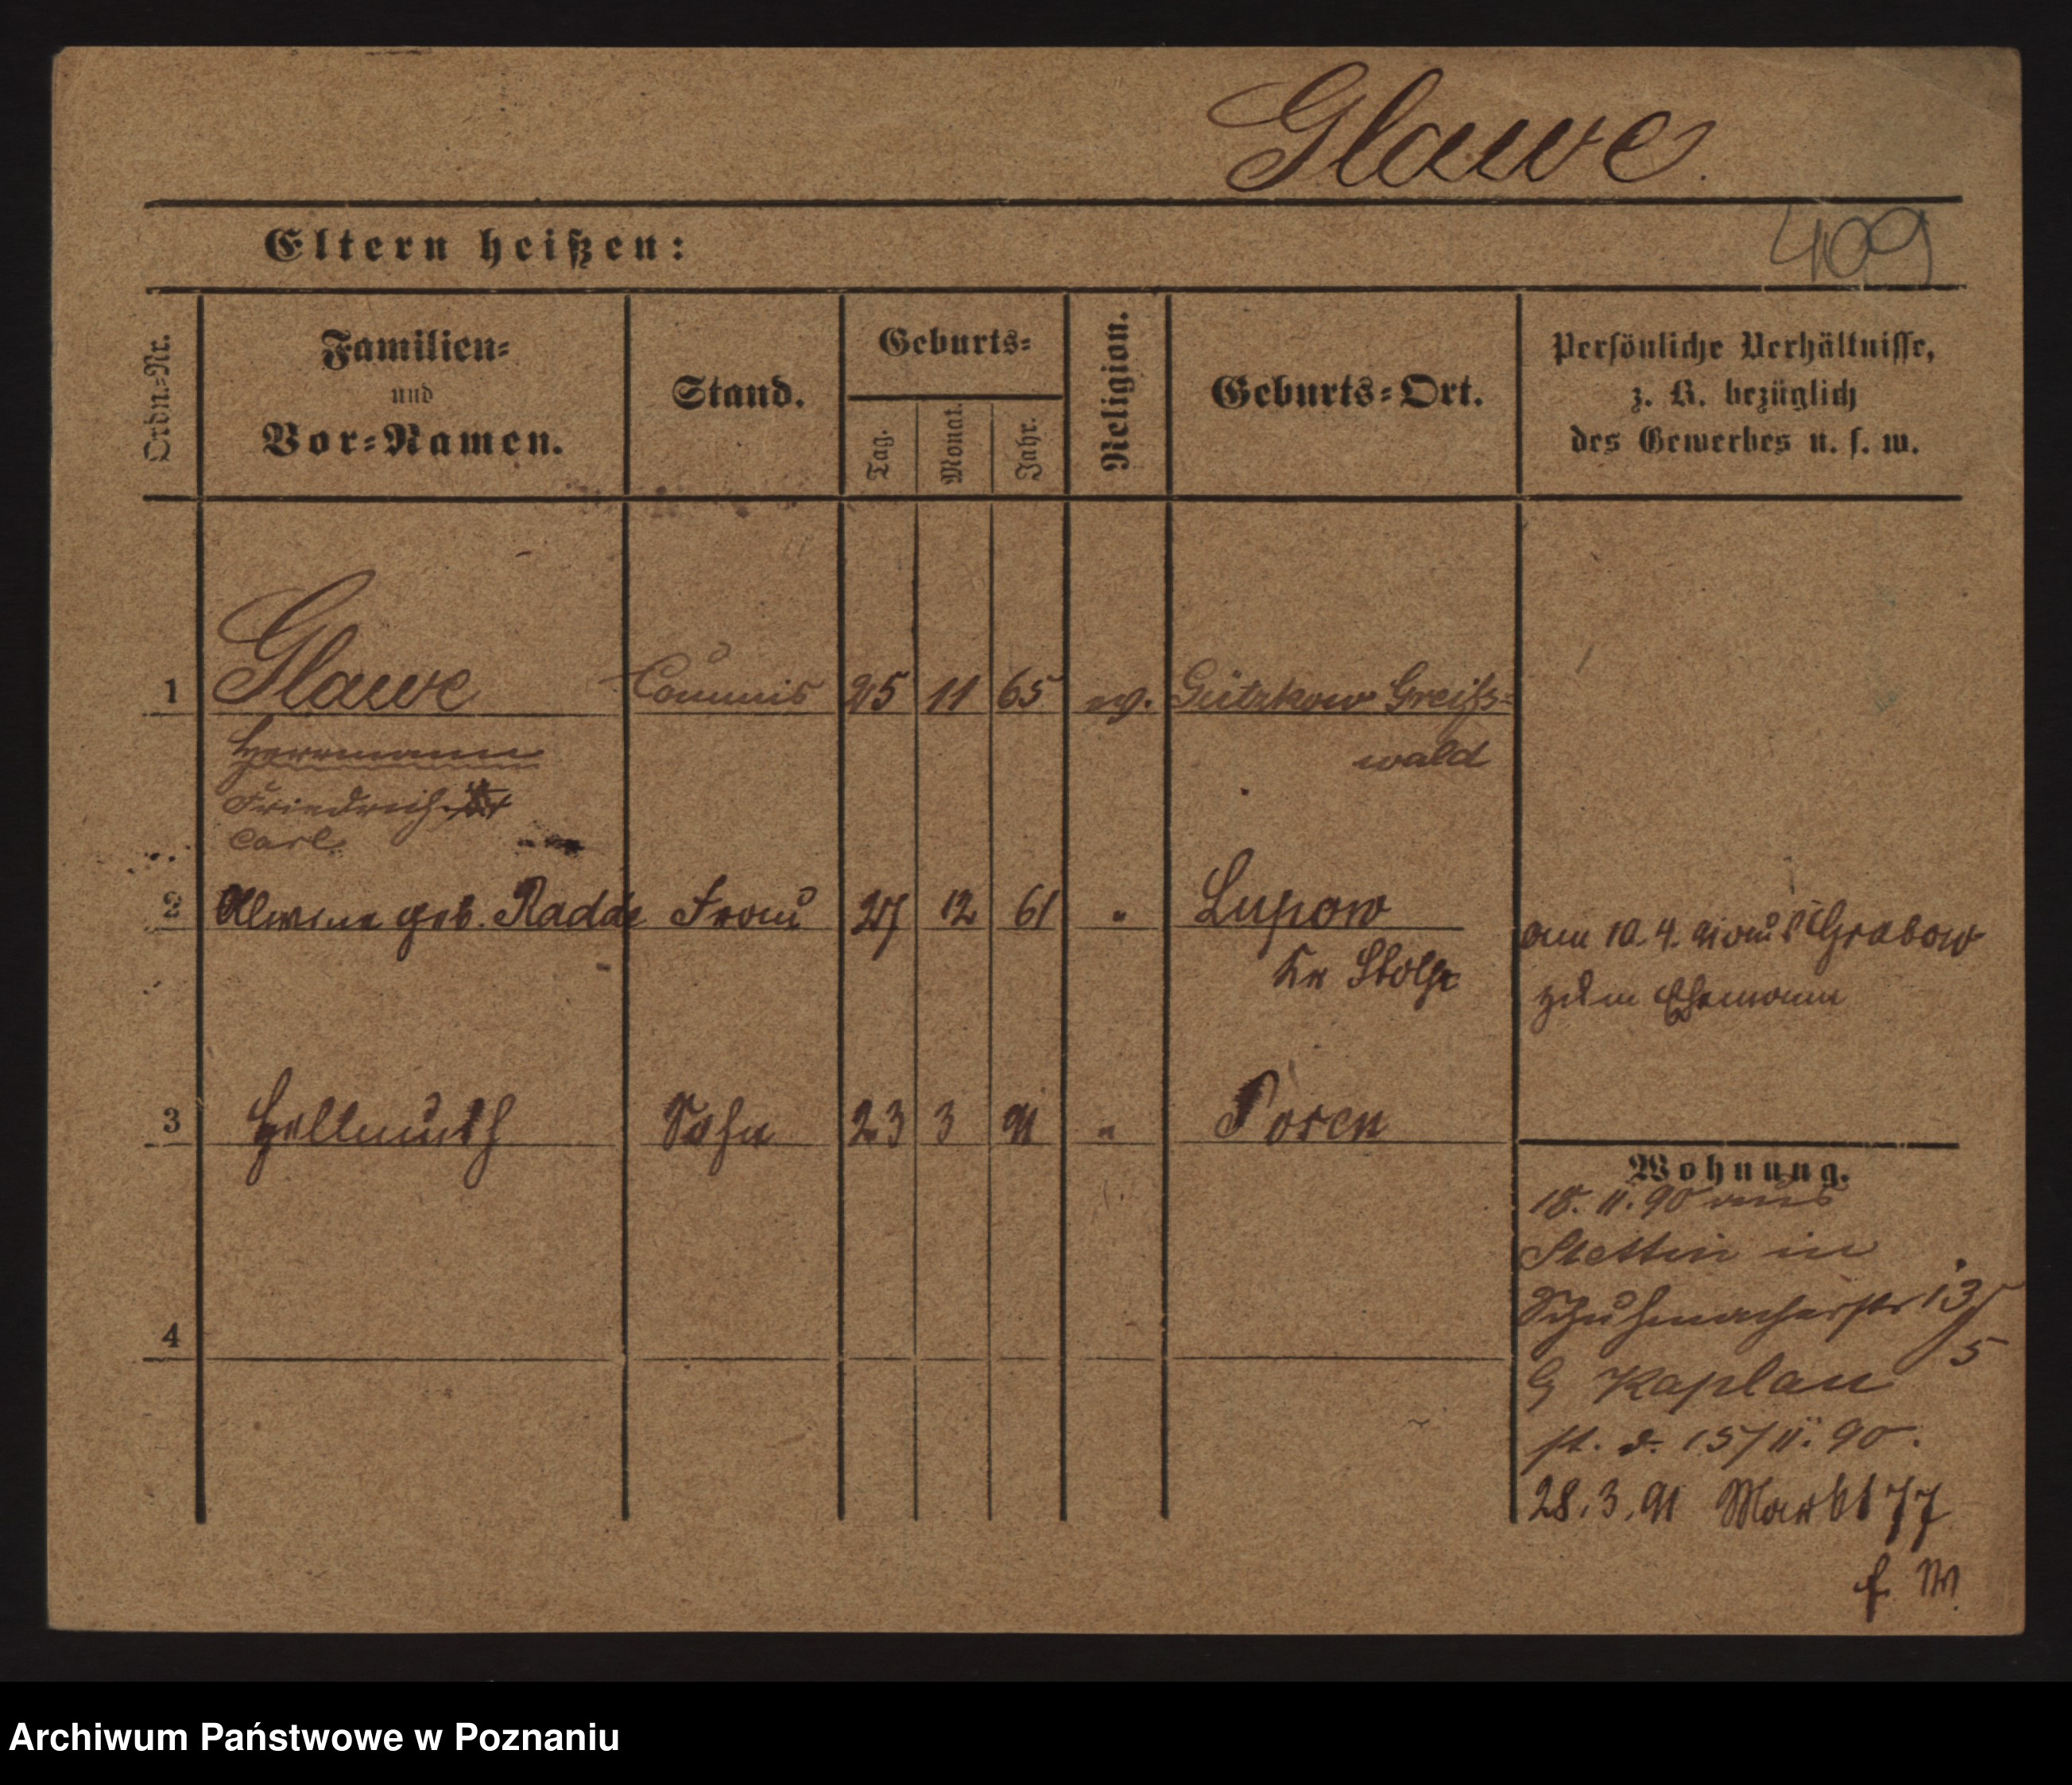 Glawe.
409
Eltern heißen:
Ordn.-Nr.
Familien-
und
Vor-Namen.
Stand.
Geburts-
Tag.
Monat.
Jahr.
Religion.
Geburts-Ort.
Persönliche Verhältnisse,
z. B. bezüglich
des Gewerbes u. s. w.
1 Glawe Commis 25 11 65 ev. Gützkow Greifs-
wald
Herrmann
Friedrich
Carl
2 Alwine geb. Radde Frau 27 12 61 " Lupow
Kr Stolp
am 10. 4. 91 aus Grabow
zum Ehemann
3 Hellmuth Sohn 23 3 91 " Posen
Wohnung.
18. 11. 90 aus
Stettin in
Schuhmacherstr 13/
5
Kaplan
st. d. 15/11. 90.
28. 3. 91 Markt 77
4
Archiwum Państwowe w Poznaniu